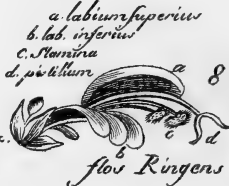 a. labium superius
b. lab. inferius
c. Stamina
d. pistilium
a
8
c
d
b
flos Ringens